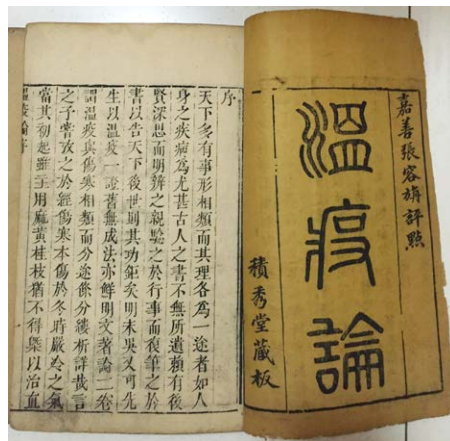 嘉善張容旃評點
溫疫論
積秀堂藏板
序
天下多有事形相類而其理各為一途者如人
身之疾病為尤甚古人之書不無所遺賴有後
賢深思而明辨之親驗之於行事而復筆之於
書以告天下後世則其功鉅矣明末吳又可先
生以溫疫一證舊無成法亦鮮明文著論二卷
謂溫疫與傷寒相類而分途條分縷析詳哉言
之予嘗攷之於經傷寒本傷於冬時嚴冷之氣
當其初起雖主用麻黃桂枝猶不得槩以治